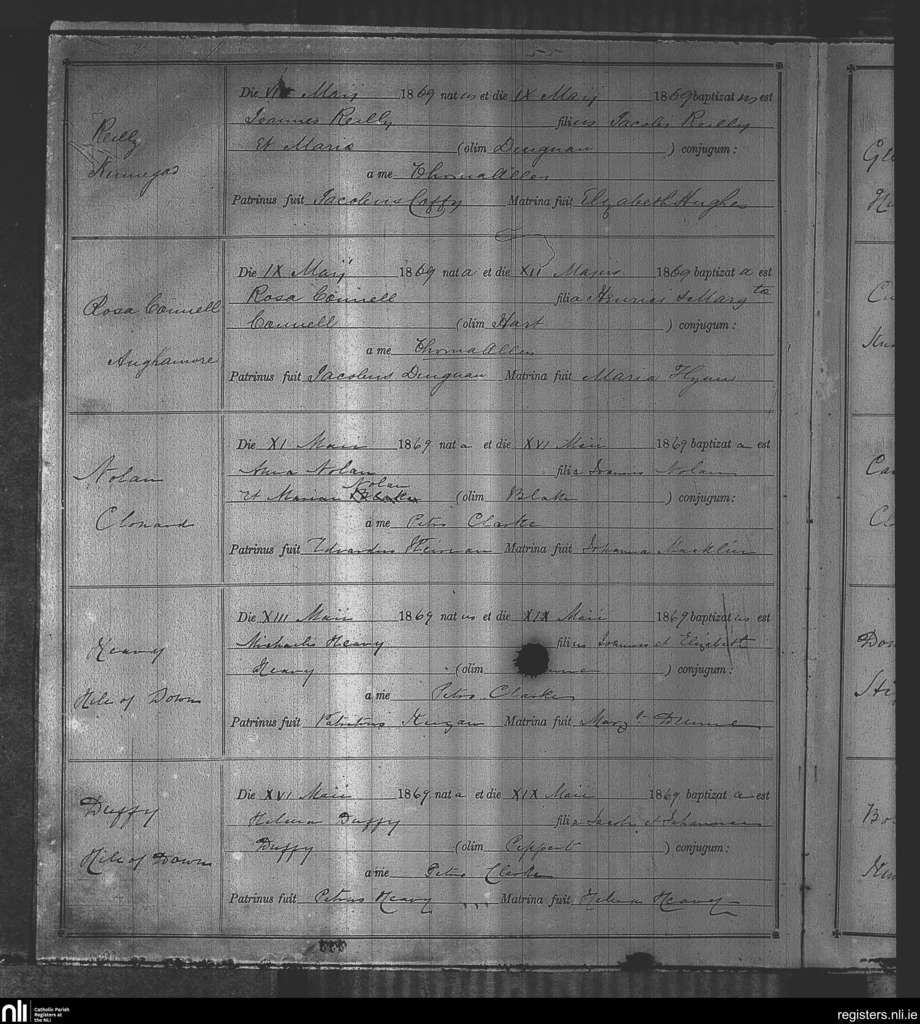 55
Reilly
Kinnegad
Die VII Maij 1869 natus et die IX Maij 1869 baptizatus est
Joannes Reilly filius Jacobi Reilly
et Maria (olim Duignan) conjugum:
a me Thoma Allen
Patrinus fuit Jacobus Coffy Matrina fuit Elizabeth Hughes
Rosa Connell
Aughamore
Die IX Maij 1869 nata et die XII Majus 1869 baptizata est
Rosa Connell filia Henrici & Margta
Connell (olim Hart) conjugum:
a me Thoma Allen
Patrinus fuit Jacobus Duignan Matrina fuit Maria Flynn
Nolan
Clonard
Die XI Maii 1869 nata et die XVI Maii 1869 baptizata est
Anna Nolan filia Joannis Nolan
et Mariae Nolan Blake (olim Blake) conjugum:
a me Petro Clarke
Patrinus fuit Edvardus Matrina fuit Johanna
Heavy
Hill of Down
Die XIII Maii 1869 natus et die XIX Maii 1869 baptizatus est
Michaelis Heavy filius Joannis et Elizabeth
Heavy (olim) conjugum:
a me Petro Clarke
Patrinus fuit Patritius Matrina fuit Margt Dunne
Duffy
Hill of Down
Die XVI Maii 1869 nata et die XIX Maii 1869 baptizata est
Helena Duffy filia Jacobi et Johannae
Duffy (olim Peppert) conjugum:
a me Petro Clarke
Patrinus fuit Petrus Heavy Matrina fuit Helena Heavey
nli
Catholic Parish
Registers at
the NLI
registers.nli.ie